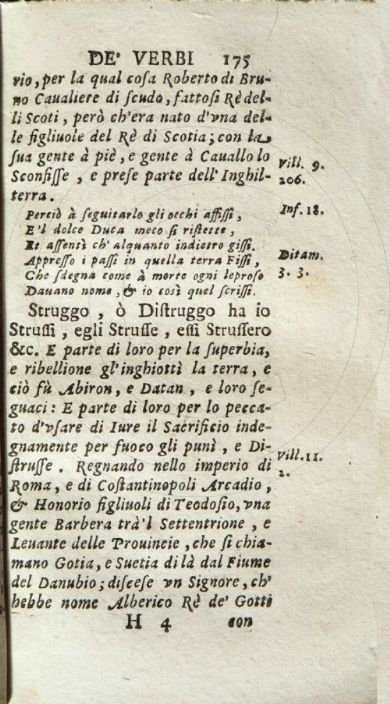 DE' VERBI 175
rio, per la qual cosa Roberto di Bru-
no Caualiere di scudo, fattosi Rè del-
li Scoti, però ch'era nato d'vna del-
le figliuole del Rè di Scotia; con la
sua gente à piè, e gente à Cauallo lo
Sconfisse, e prese parte dell'Inghil-
terra.
Vill. 9.
206.
Perciò à seguitarlo gli occhi affissi,
E'l dolce Duca meco si ristette,
Et assentì ch'alquanto indietro gissi.
Appresso i passi in quella terra Fissi,
Che sdegna come à morte ogni leproso
Dauano nome, & io così quel scrissi.
Inf. 18.
Ditam.
3. 3.
Struggo, ò Distruggo ha io
Strussi, egli Strusse, essi Strussero
&c. E parte di loro per la superbia,
e ribellione gl'inghiottì la terra, e
ciò fù Abiron, e Datan, e loro se-
guaci: E parte di loro per lo pecca-
to d'vsare di Iure il Sacrificio inde-
gnamente per fuoco gli punì, e Di-
strusse. Regnando nello imperio di
Roma, e di Costantinopoli Arcadio,
& Honorio figliuoli di Teodosio, vna
gente Barbera trà'l Settentrione, e
Leuante delle Prouincie, che si chia-
mano Gotia, e Suetia di là dal Fiume
del Danubio; discese vn Signore, ch'
hebbe nome Alberico Rè de' Gotti
Vill. 11.
2.
H 4 con